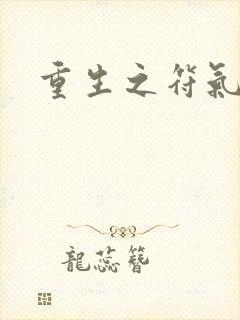 重生之符氣
龍蕊簪